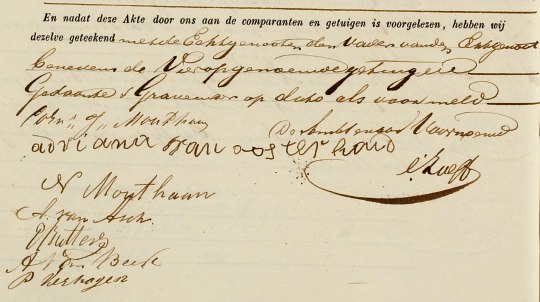 En nadat deze Akte door ons aan de comparanten en getuigen is voorgelezen, hebben wij
dezelve geteekend met de Echtgenooten den Vader van den Echtgenoot
benevens de Vier opgenoemde getuigen
Gedaan te s Gravemoer op dato als voor meld
Corn: J: Mouthaan De Ambtenaar Voornoemd
adriana van oosterhoud
N Mouthaan
A. van Asch
A V D Beek
P Verhagen